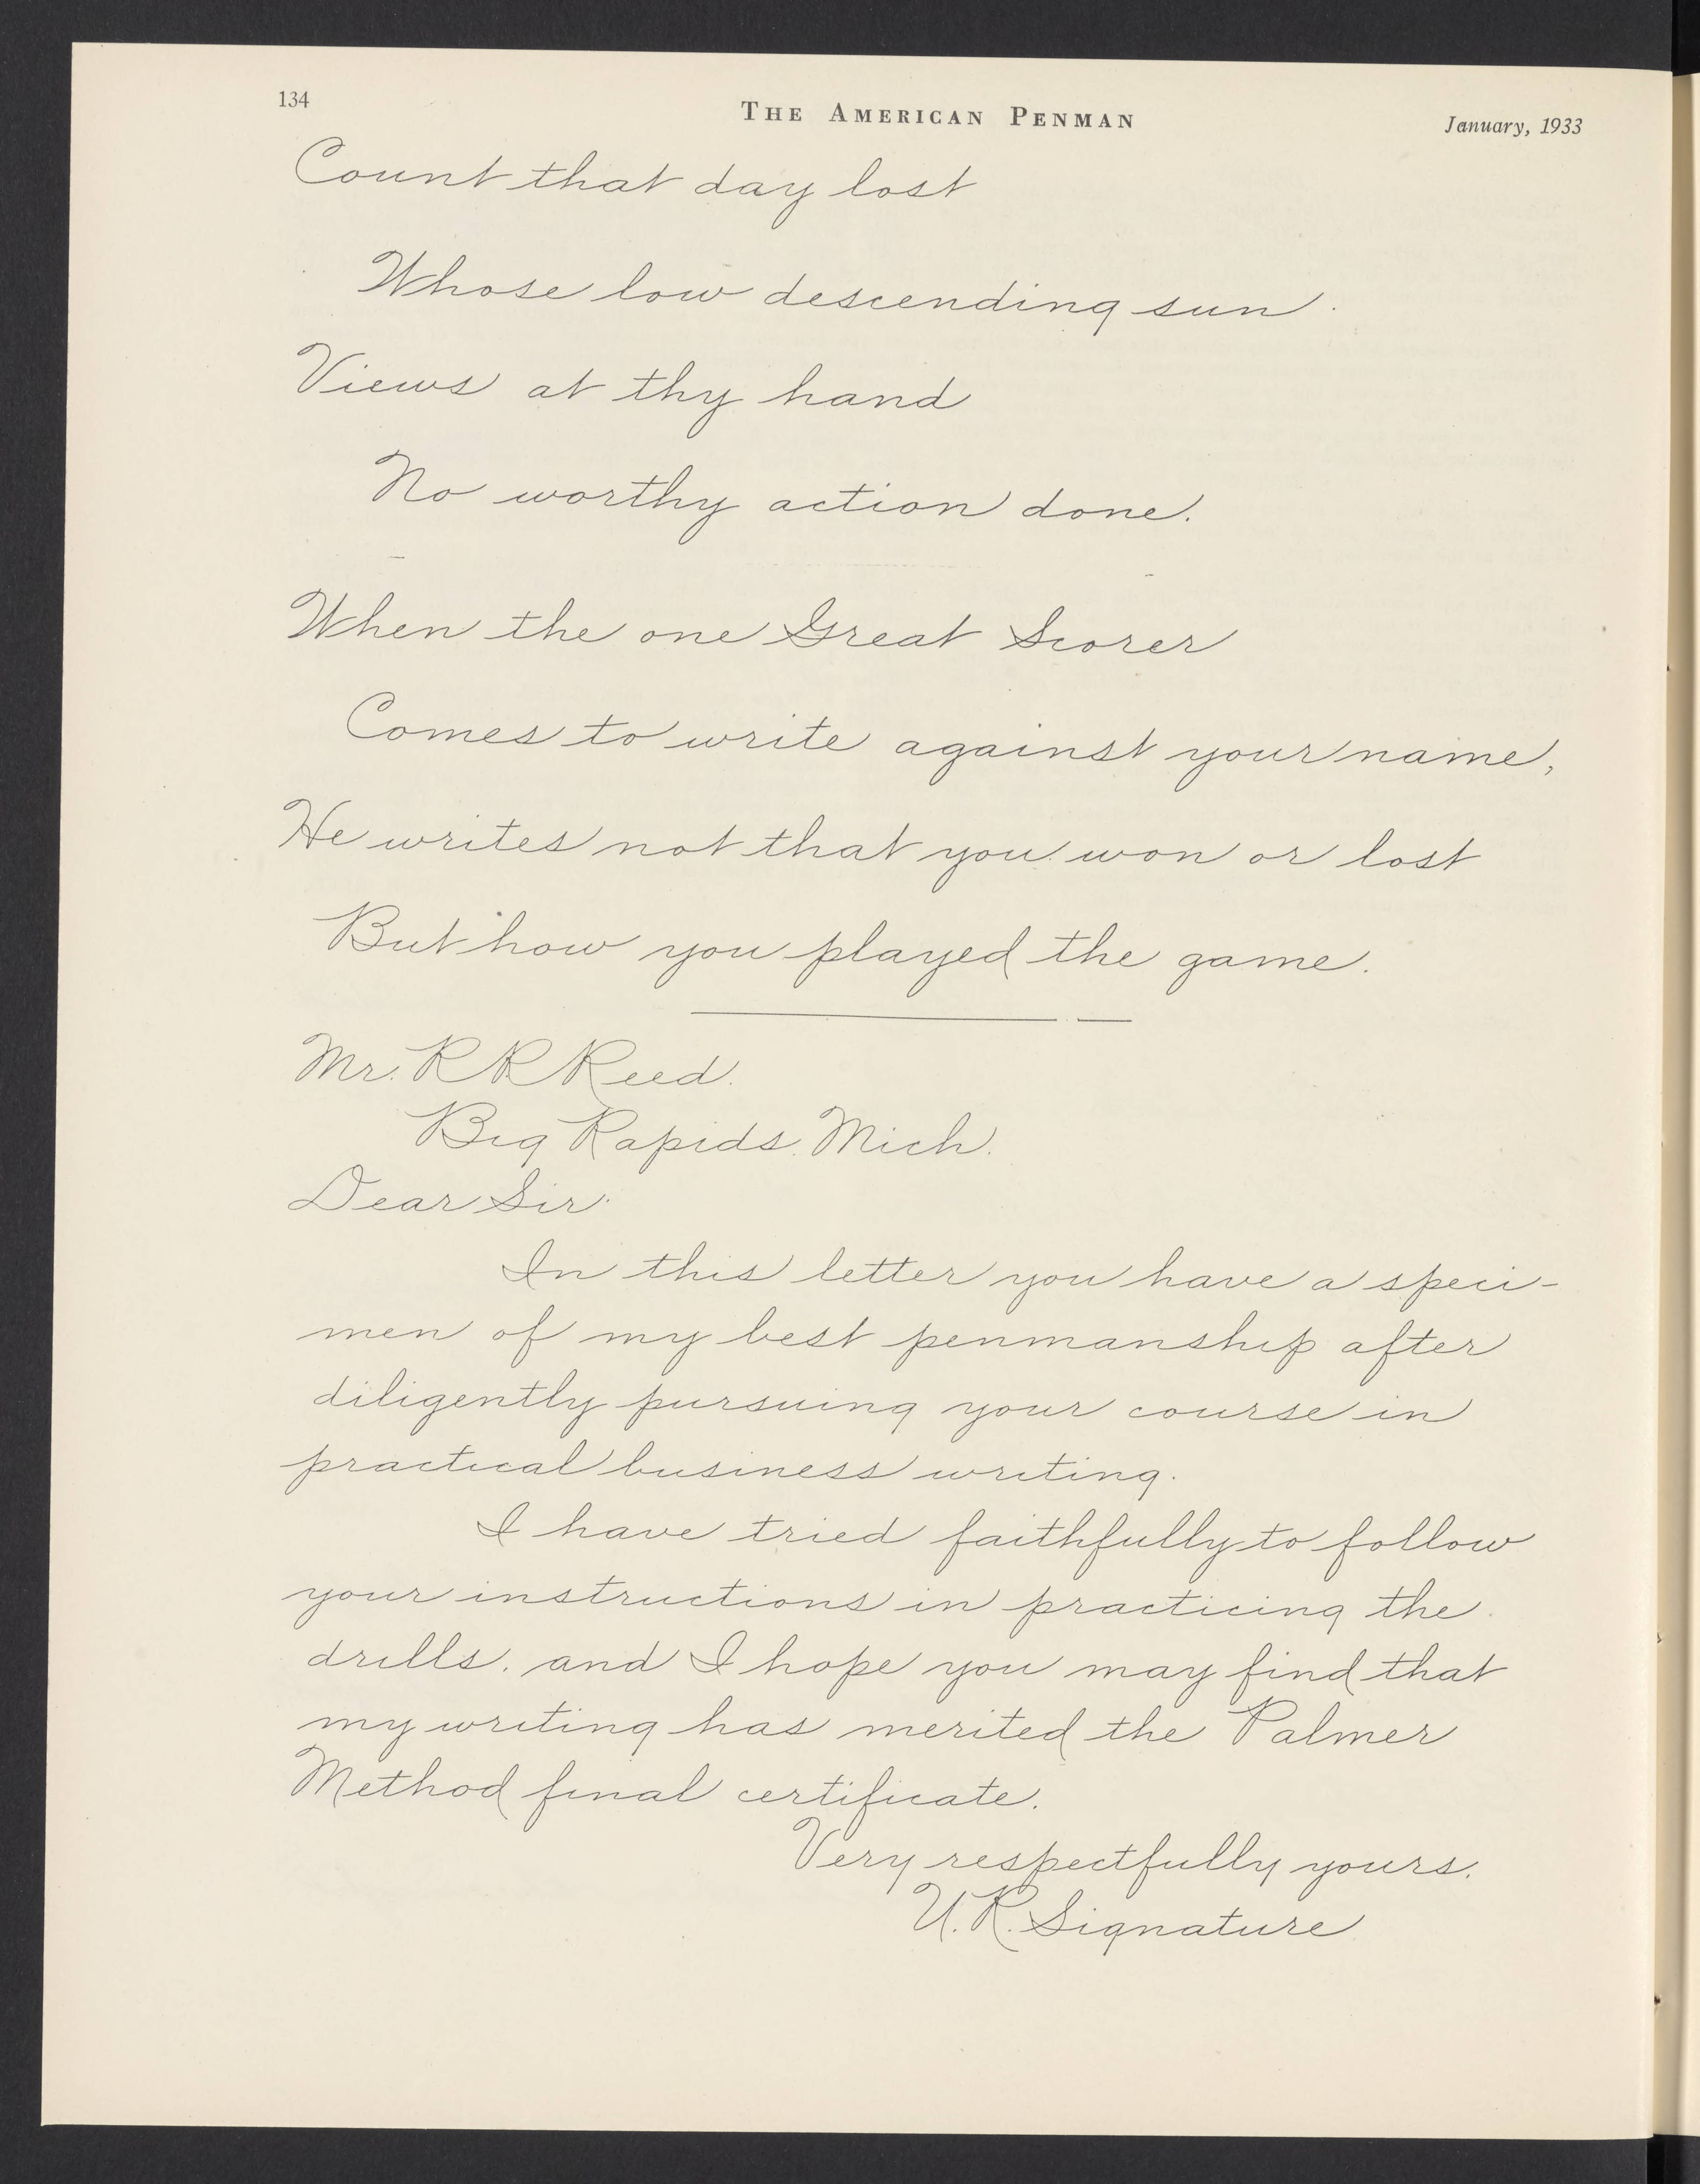 134
THE AMERICAN PENMAN
January, 1933
Count that day lost
Whose low descending sun
Views at thy hand
No worthy action done.
When the one Great Scorer
Comes to write against your name,
He writes not that you won or lost
But how you played the game.
Mr. R R Reed.
Big Rapids. Mich.
Dear Sir.
In this letter you have a speci-
men of my best penmanship after
diligently pursuing your course in
practical business writing.
I have tried faithfully to follow
your instructions in practicing the
drills, and I hope you may find that
my writing has merited the Palmer
Method final certificate.
Very respectfully yours.
U. R. Signature